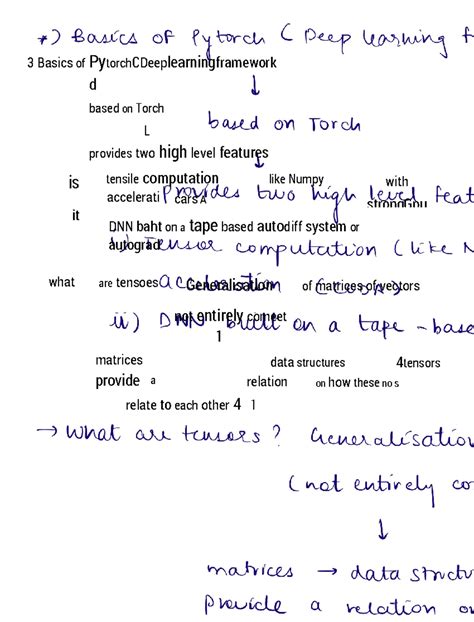 *) Basics of Pytorch ( Deep learning f
3 Basics of PytorchCDeeplearningframework
d
↓
based on Torch
based on Torch
L
provides two high level features
↓
is tensile computation like Numpy with
accelerati cars A strongGpu
Provides two high level feat
it
DNN baht on a tape based autodiff system or
autograd
i) Tensor computation (like N
what are tensoes Generalisation of matrices of vectors
acceleration
ii) DNN built on a tape - base
not entirely correct
1
matrices data structures 4tensors
provide a relation on how these no s
relate to each other 4 1
→ What are tensors? Generalisation
(not entirely co
↓
matrices → data struct
Provide a relation o